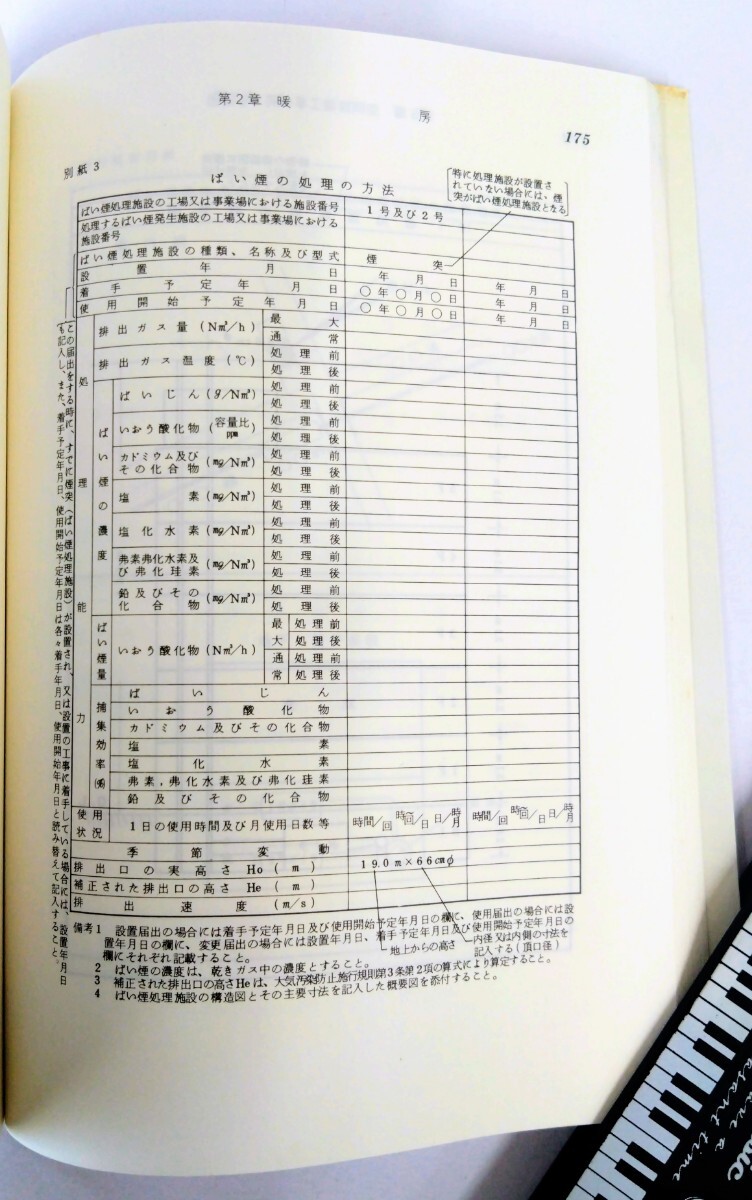 第2章 暖 房
175
別紙3
ばい煙の処理の方法
特に処理施設が設置さ
れていない場合には、煙
突がばい煙処理施設となる
ばい煙処理施設の工場又は事業場における施設番号
1号及び2号
処理するばい煙発生施設の工場又は事業場における
施設番号
ばい煙処理施設の種類、名称及び型式
煙 突
設 置 年 月 日
年 月 日
年 月 日
着 手 予 定 年 月 日
○年○月○日
年 月 日
使 用 開 始 予 定 年 月 日
○年○月○日
年 月 日
処理能力
排出ガス量(Nm³/h)
最 大
通 常
排出ガス温度(℃)
処 理 前
処 理 後
ばい煙の濃度
ばいじん(g/Nm³)
処 理 前
処 理 後
いおう酸化物(容量比ppm)
処 理 前
処 理 後
カドミウム及び
その化合物(mg/Nm³)
処 理 前
処 理 後
塩 素(mg/Nm³)
処 理 前
処 理 後
塩 化 水 素(mg/Nm³)
処 理 前
処 理 後
弗素弗化水素及
び弗化珪素(mg/Nm³)
処 理 前
処 理 後
鉛及びその
化 合 物(mg/Nm³)
処 理 前
処 理 後
ばい煙量
いおう酸化物(Nm³/h)
最大
処理前
処理後
通常
処理前
処理後
捕集効率(%)
ば い じ ん
い お う 酸 化 物
カドミウム及びその化合物
塩 素
塩 化 水 素
弗素,弗化水素及び弗化珪素
鉛及びその化合物
使用状況
1日の使用時間及び月使用日数等
時間/回 時回/日 日/時月
時間/回 時回/日 日/時月
季 節 変 動
排出口の実高さHo(m)
19.0m×66cmφ
補正された排出口の高さHe(m)
排 出 速 度(m/s)
地上からの高さ
内径又は内側の寸法を
記入する(頂口径)
備考1 設置届出の場合には着手予定年月日及び使用開始予定年月日の欄に、使用届出の場合には設
置年月日の欄に、変更届出の場合には設置年月日、着手予定年月日及び使用開始予定年月日の
欄にそれぞれ記載すること。
2 ばい煙の濃度は、乾きガス中の濃度とすること。
3 補正された排出口の高さHeは、大気汚染防止施行規則第3条第2項の算式により算定すること。
4 ばい煙処理施設の構造図とその主要寸法を記入した概要図を添付すること。
この届出をする時に、すでに煙突(ばい煙処理施設)が設置され、又は設置の工事に着手している場合には、設置年月日
も記入し、また、着手予定年月日、使用開始予定年月日は各々着手年月日、使用開始年月日と読み替えて記入すること。